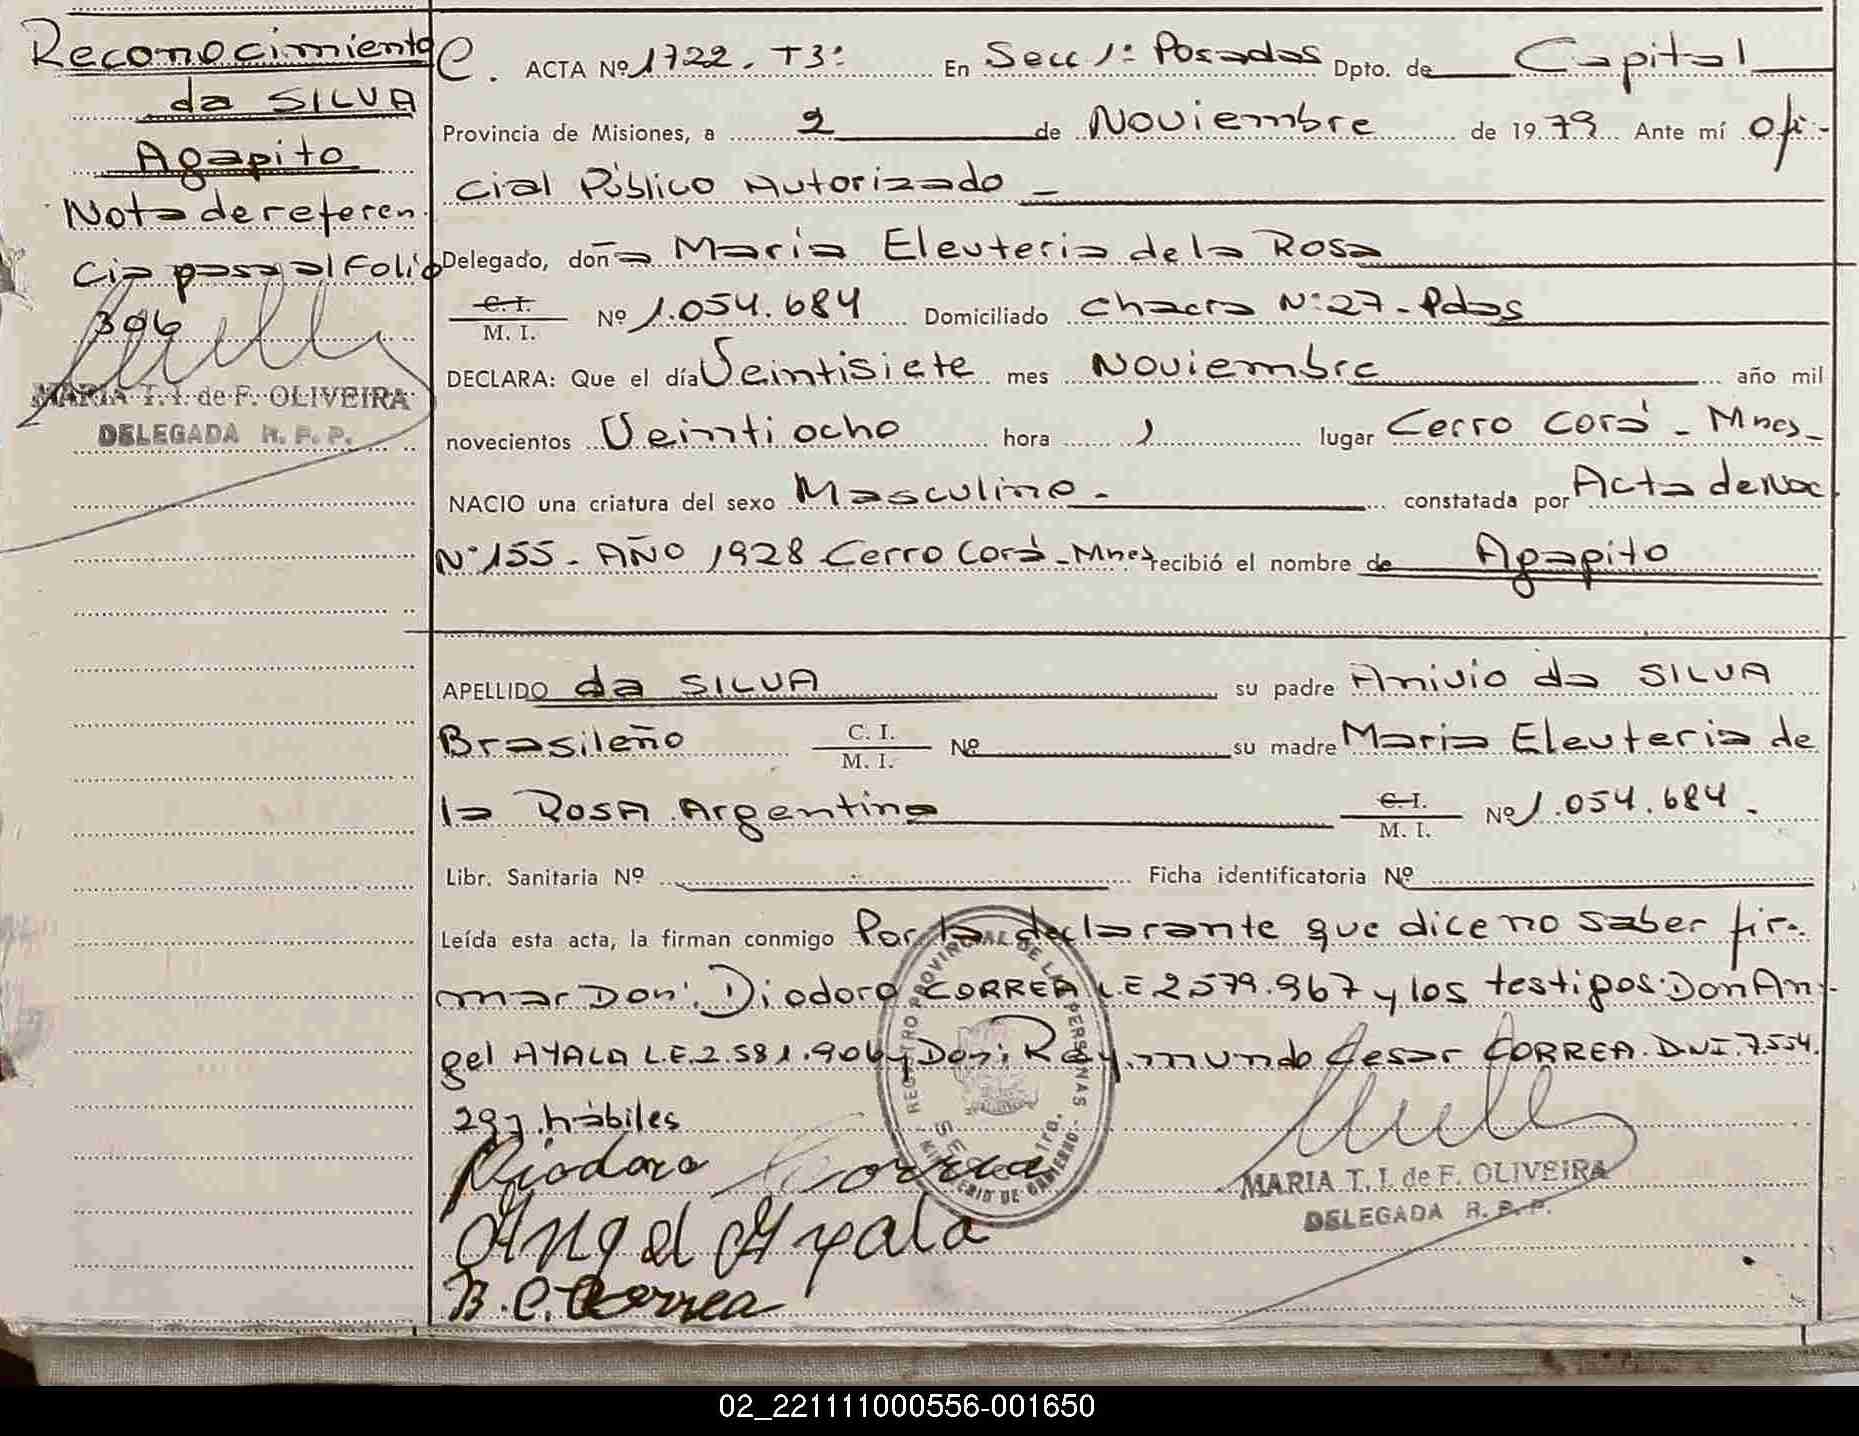 Reconocimiento
da SILVA
Agapito
Nota de referen-
cia pasa al Folio
396
MARIA T. I. de F. OLIVEIRA
DELEGADA R. P. P.
C. ACTA Nº 1722. T3º En Secc 1ª Posadas Dpto. de Capital
Provincia de Misiones, a 2 de Noviembre de 1979 Ante mí ofi-
cial Público Autorizado -
Delegado, doña Maria Eleuteria de la Rosa
C. I.
M. I. Nº 1.054.684 Domiciliado chacra Nº 27 - Pdas
DECLARA: Que el día Veintisiete mes Noviembre año mil
novecientos Veintiocho hora 1 lugar Cerro Corá - Mnes -
NACIO una criatura del sexo Masculino - constatada por Acta de Nac.
Nº 155 - AÑO 1928 Cerro Corá - Mnes recibió el nombre de Agapito
APELLIDO da SILVA su padre Anivio da SILVA
Brasileño C. I. M. I. Nº su madre Maria Eleuteria de
la ROSA Argentina C. I. M. I. Nº 1.054.684.
Libr. Sanitaria Nº Ficha identificatoria Nº
Leída esta acta, la firman conmigo Por la declarante que dice no saber fir-
mar Don: Diodoro CORREA L.E 2.579.967 y los testigos: Don An-
gel AYALA L.E. 2.581.906 y Don: Raymundo Cesar CORREA. D.N.I. 7.554.
297. hábiles
REGISTRO PROVINCIAL DE LAS PERSONAS
MINISTERIO DE GOBIERNO
Diodoro Correa
Angel Ayala
R. C. Correa
MARIA T. I. de F. OLIVEIRA
DELEGADA R. P. P.
02_221111000556-001650